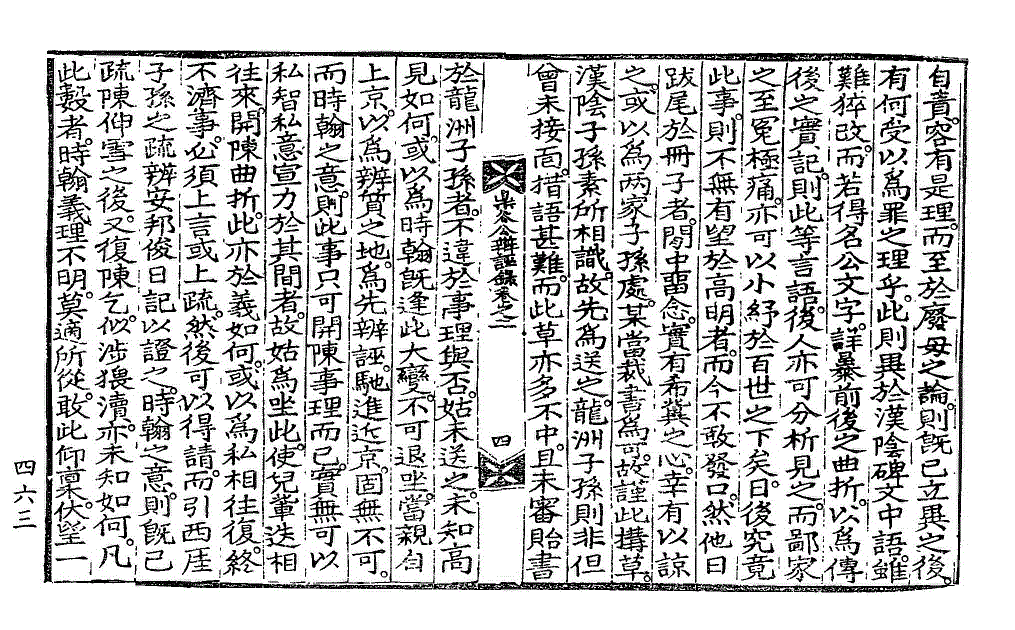 自責容有是理而至於廢母之論則旣已立異之後
有何受以爲罪之理乎此則異於漢陰碑文中語雖
難猝改而若得名公文字詳暴前後之曲折以爲傳
後之實記則此等言語後人亦可分析見之而鄙家
之至冤極痛亦可以小紓於百世之下矣日後究竟
此事則不無有望於高明者而今不敢發口然他日
跋尾於冊子者間中留念實有希冀之心幸有以諒
之或以爲兩家子孫處某當裁書爲可故謹此搆草
漢陰子孫素所相識故先爲送之龍洲子孫則非但
曾未接面措語甚難而此草亦多不中且未審貽書
公辨誣錄卷之二
四
於龍洲子孫者不違於事理與否姑未送之未知高
見如何或以爲時翰旣逢此大變不可退坐當親自
上京以爲辨質之地爲先辨誣馳進近京固無不可
而時翰之意則此事只可開陳事理而已實無可以
私智私意宣力於其間者故姑爲坐此使兒輩迭相
往來開陳曲折此亦於義如何或以爲私相往復終
不濟事必須上言或上疏然後可以得請而引西厓
子孫之疏辨安邦俊日記以證之時翰之意則旣已
疏陳伸雪之後又復陳乞似涉猥瀆亦未知如何凡
此數者時翰義理不明莫適所從敢此仰稟伏望一
四六三